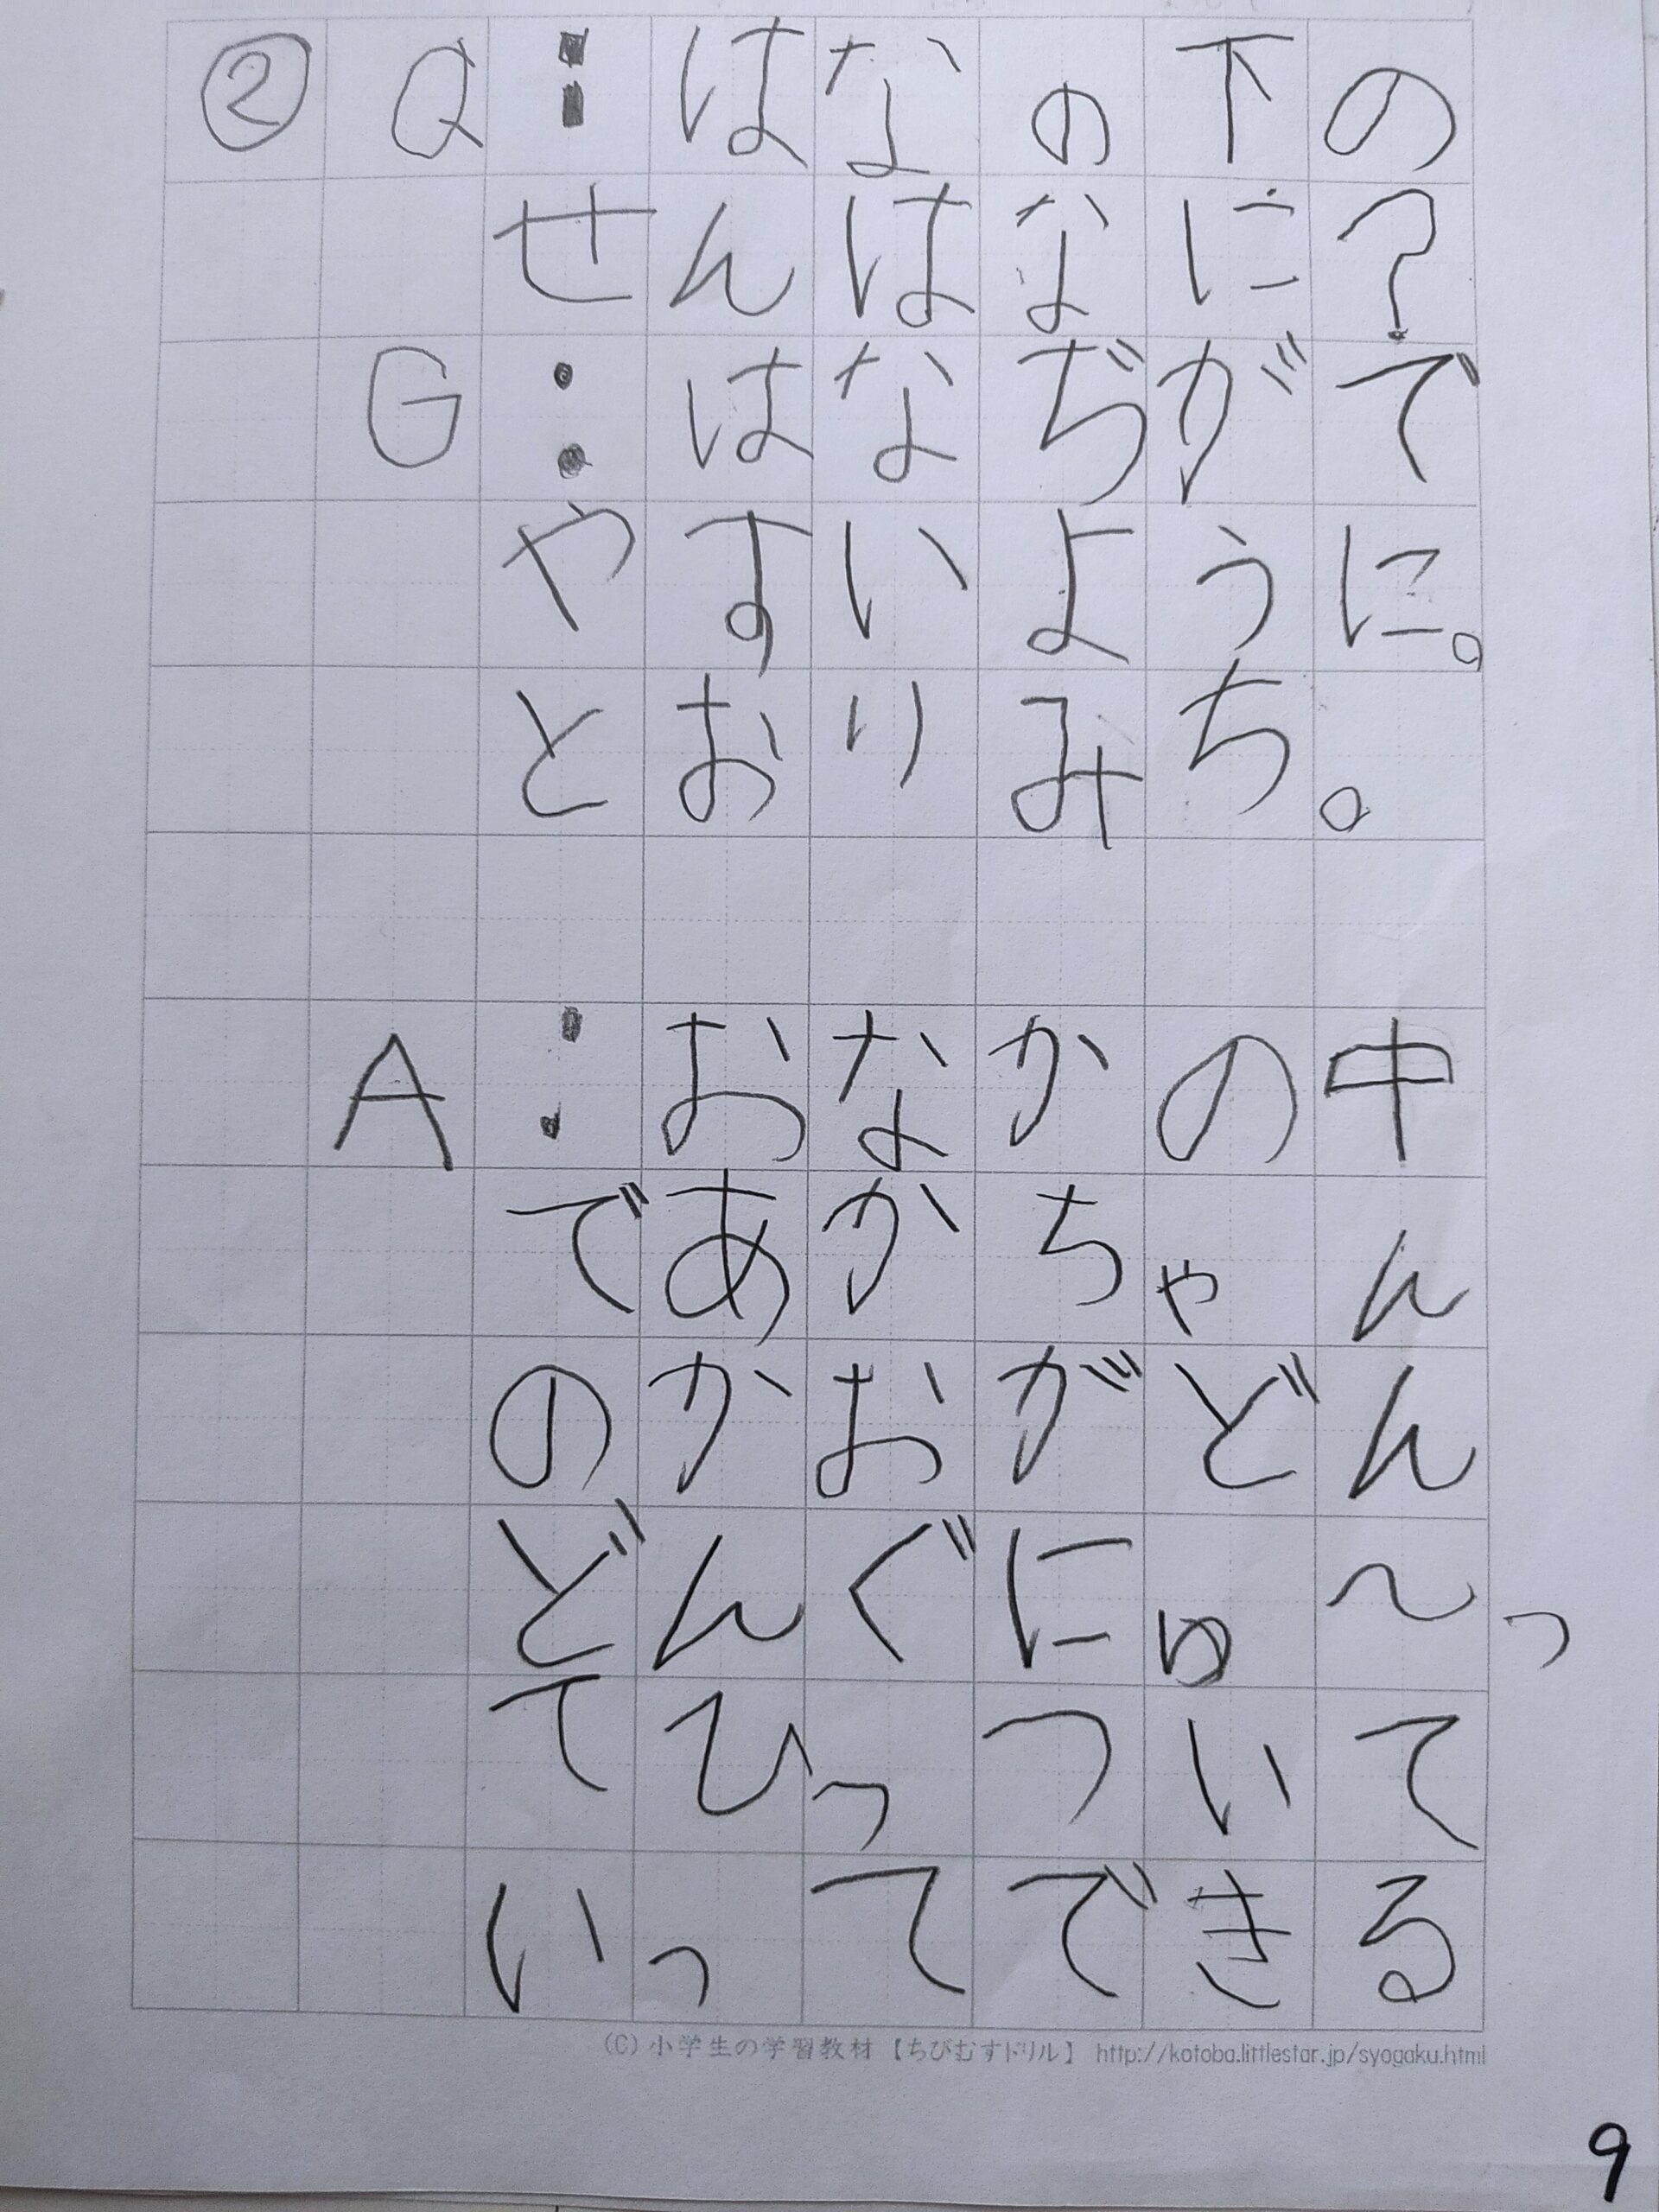 ② Q:はなの下の
せんはなに?
G:はなぢがで
やすいように。
とおりみち。
A:おなかの中
であかちゃん
のかおがどん
どんぐにゅ~っ
てひっついて
いってできる
(C) 小学生の学習教材【ちびむすドリル】 http://kotoba.littlestar.jp/syogaku.html
9